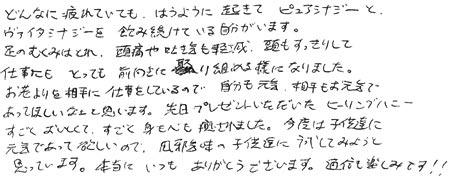 どんなに疲れていても、はうように起きてピュアシナジーと、
ヴァイタシナジーを飲み続けている自分がいます。
足のむくみはとれ、頭痛や吐き気も軽減、頭もすっきりして
仕事にもとっても前向きに取り組める様になりました。
お老よりを相手に仕事をしているので自分も元気、相手もお元気で
あってほしいなぁと思います。先日プレゼントいただいたヒーリングハニー
すごくおいしくて、すごく身も心も癒されました。今度は子供達に
元気であって欲しいので、風邪気味の子供達にうつしてみようと
思っています。本当にいつもありがとうございます。通信も楽しみです!!